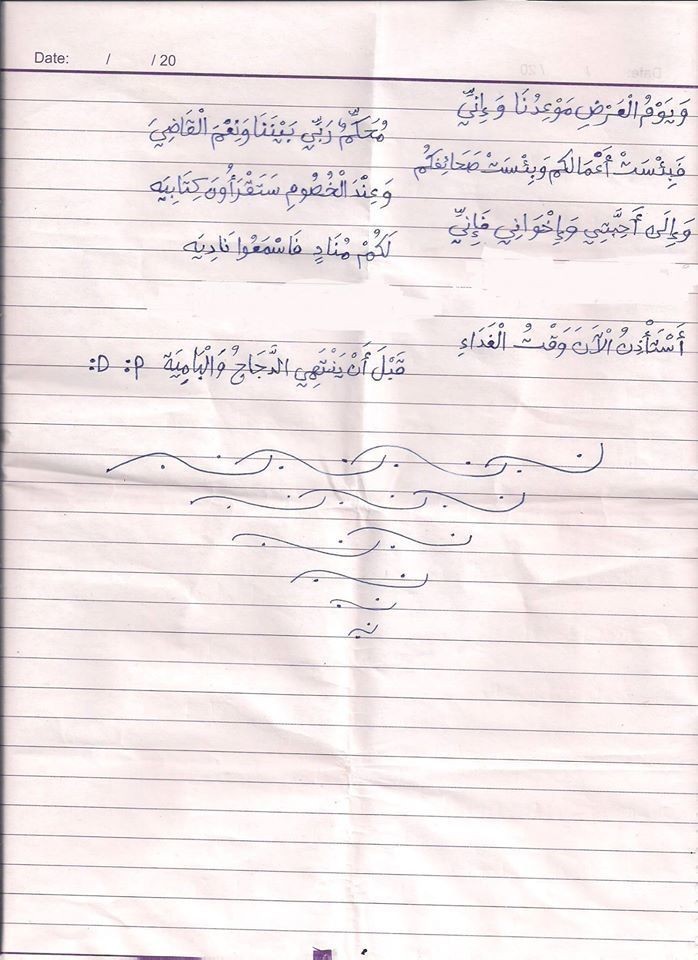 Date: / / 20
وَيَوْمُ الْعَرْضِ مَوْعِدُنَا وَإِنِّي
مُحَكِّمٌ رَبِّي بَيْنَنَا وَنِعْمَ الْقَاضِيَ
فَبِئْسَتْ أَعْمَالكُم وَبِئْسَتْ صَحَائِفكُم
وَعِنْدَ الْخُصُومِ سَتَقْرَأُونَ كِتَابِيَه
وَإِلَى أَحِبَّتِي وَإِخْوَانِي فَإِنِّي
لَكُمْ مُنَادٍ فَاسْمَعُوا نَادِيَه
أَسْتَأْذِنُ الْآنَ وَقْتُ الْغَدَاءِ
قَبْلَ أَنْ يَنْتَهِي الدَّجَاجُ وَالْبَامِيَة :P :D